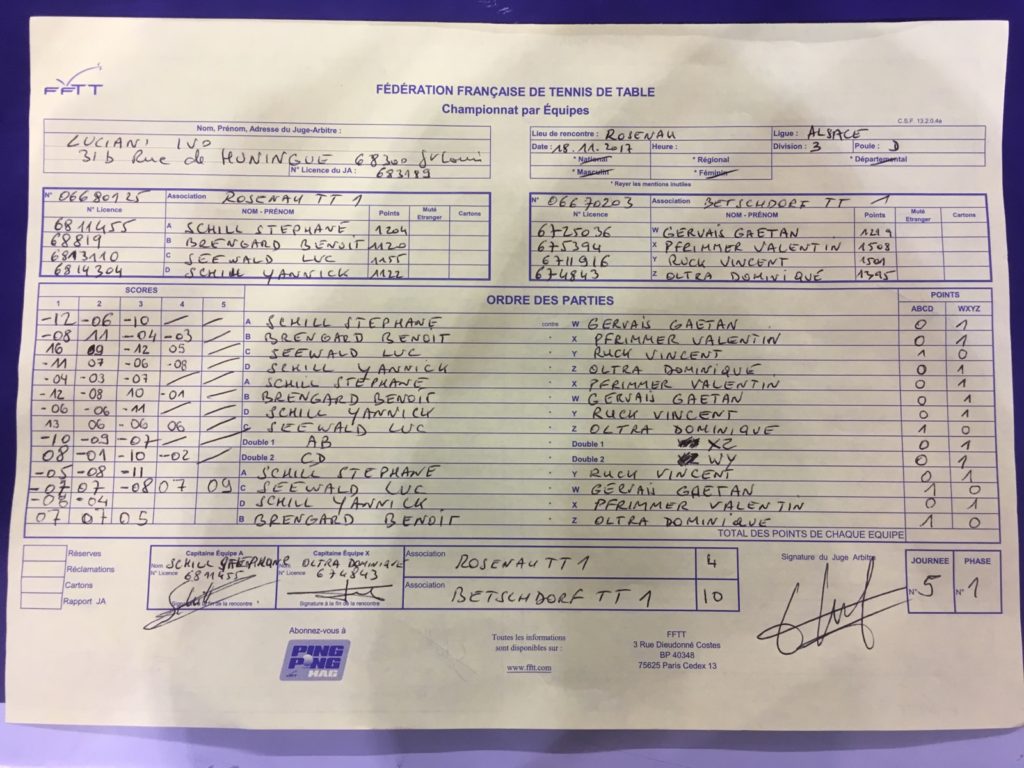 FFTT
FÉDÉRATION FRANÇAISE DE TENNIS DE TABLE
Championnat par Équipes
C.S.F. 13.2.0.4a
Nom, Prénom, Adresse du Juge-Arbitre :
LUCIANI IVO
31b Rue de HUNINGUE 68300 St Louis
N° Licence du JA : 683189
Lieu de rencontre : ROSENAU Ligue : ALSACE
Date : 18.11.2017 Heure : Division : 3 Poule : D
* National * Régional * Départemental
* Masculin * Féminin
* Rayer les mentions inutiles
N° 06680125 Association ROSENAU TT 1
N° Licence NOM - PRÉNOM Points Muté Etranger Cartons
6811455 A SCHILL STEPHANE 1204
68819 B BRENGARD BENOIT 1120
6813110 C SEEWALD LUC 1155
6814304 D SCHILL YANNICK 1122
N° 06670203 Association BETSCHDORF TT 1
N° Licence NOM - PRÉNOM Points Muté Etranger Cartons
6725036 W GERVAIS GAETAN 1219
675394 X PFRIMMER VALENTIN 1508
6711916 Y RUCK VINCENT 1501
674843 Z OLTRA DOMINIQUE 1395
SCORES ORDRE DES PARTIES POINTS
1 2 3 4 5 ABCD WXYZ
-12 -06 -10 A SCHILL STEPHANE contre W GERVAIS GAETAN 0 1
-08 11 -04 -03 B BRENGARD BENOIT " X PFRIMMER VALENTIN 0 1
16 09 -12 05 C SEEWALD LUC " Y RUCK VINCENT 1 0
-11 07 -06 -08 D SCHILL YANNICK " Z OLTRA DOMINIQUE 0 1
-04 -03 -07 A SCHILL STEPHANE " X PFRIMMER VALENTIN 0 1
-12 -08 10 -01 B BRENGARD BENOIT " W GERVAIS GAETAN 0 1
-06 -06 -11 D SCHILL YANNICK " Y RUCK VINCENT 0 1
13 06 -06 06 C SEEWALD LUC " Z OLTRA DOMINIQUE 1 0
-10 -09 -07 Double 1 AB " Double 1 XZ 0 1
08 -01 -10 -02 Double 2 CD " Double 2 WY 0 1
-05 -08 -11 A SCHILL STEPHANE " Y RUCK VINCENT 0 1
-07 07 -08 07 09 C SEEWALD LUC " W GERVAIS GAETAN 1 0
-08 -04 D SCHILL YANNICK " X PFRIMMER VALENTIN 0 1
07 07 05 B BRENGARD BENOIT " Z OLTRA DOMINIQUE 1 0
TOTAL DES POINTS DE CHAQUE EQUIPE
Réserves
Réclamations
Cartons
Rapport JA
Capitaine Équipe A
Nom SCHILL STEPHANE
N° Licence 6811455
Signature à la fin de la rencontre
Capitaine Équipe X
Nom OLTRA DOMINIQUE
N° Licence 674843
Signature à la fin de la rencontre
Association ROSENAU TT 1 4
Association BETSCHDORF TT 1 10
Signature du Juge Arbitre
JOURNEE PHASE
N° 5 N° 1
Abonnez-vous à
PING PONG MAG
Toutes les informations
sont disponibles sur :
www.fftt.com
FFTT
3 Rue Dieudonné Costes
BP 40348
75625 Paris Cedex 13